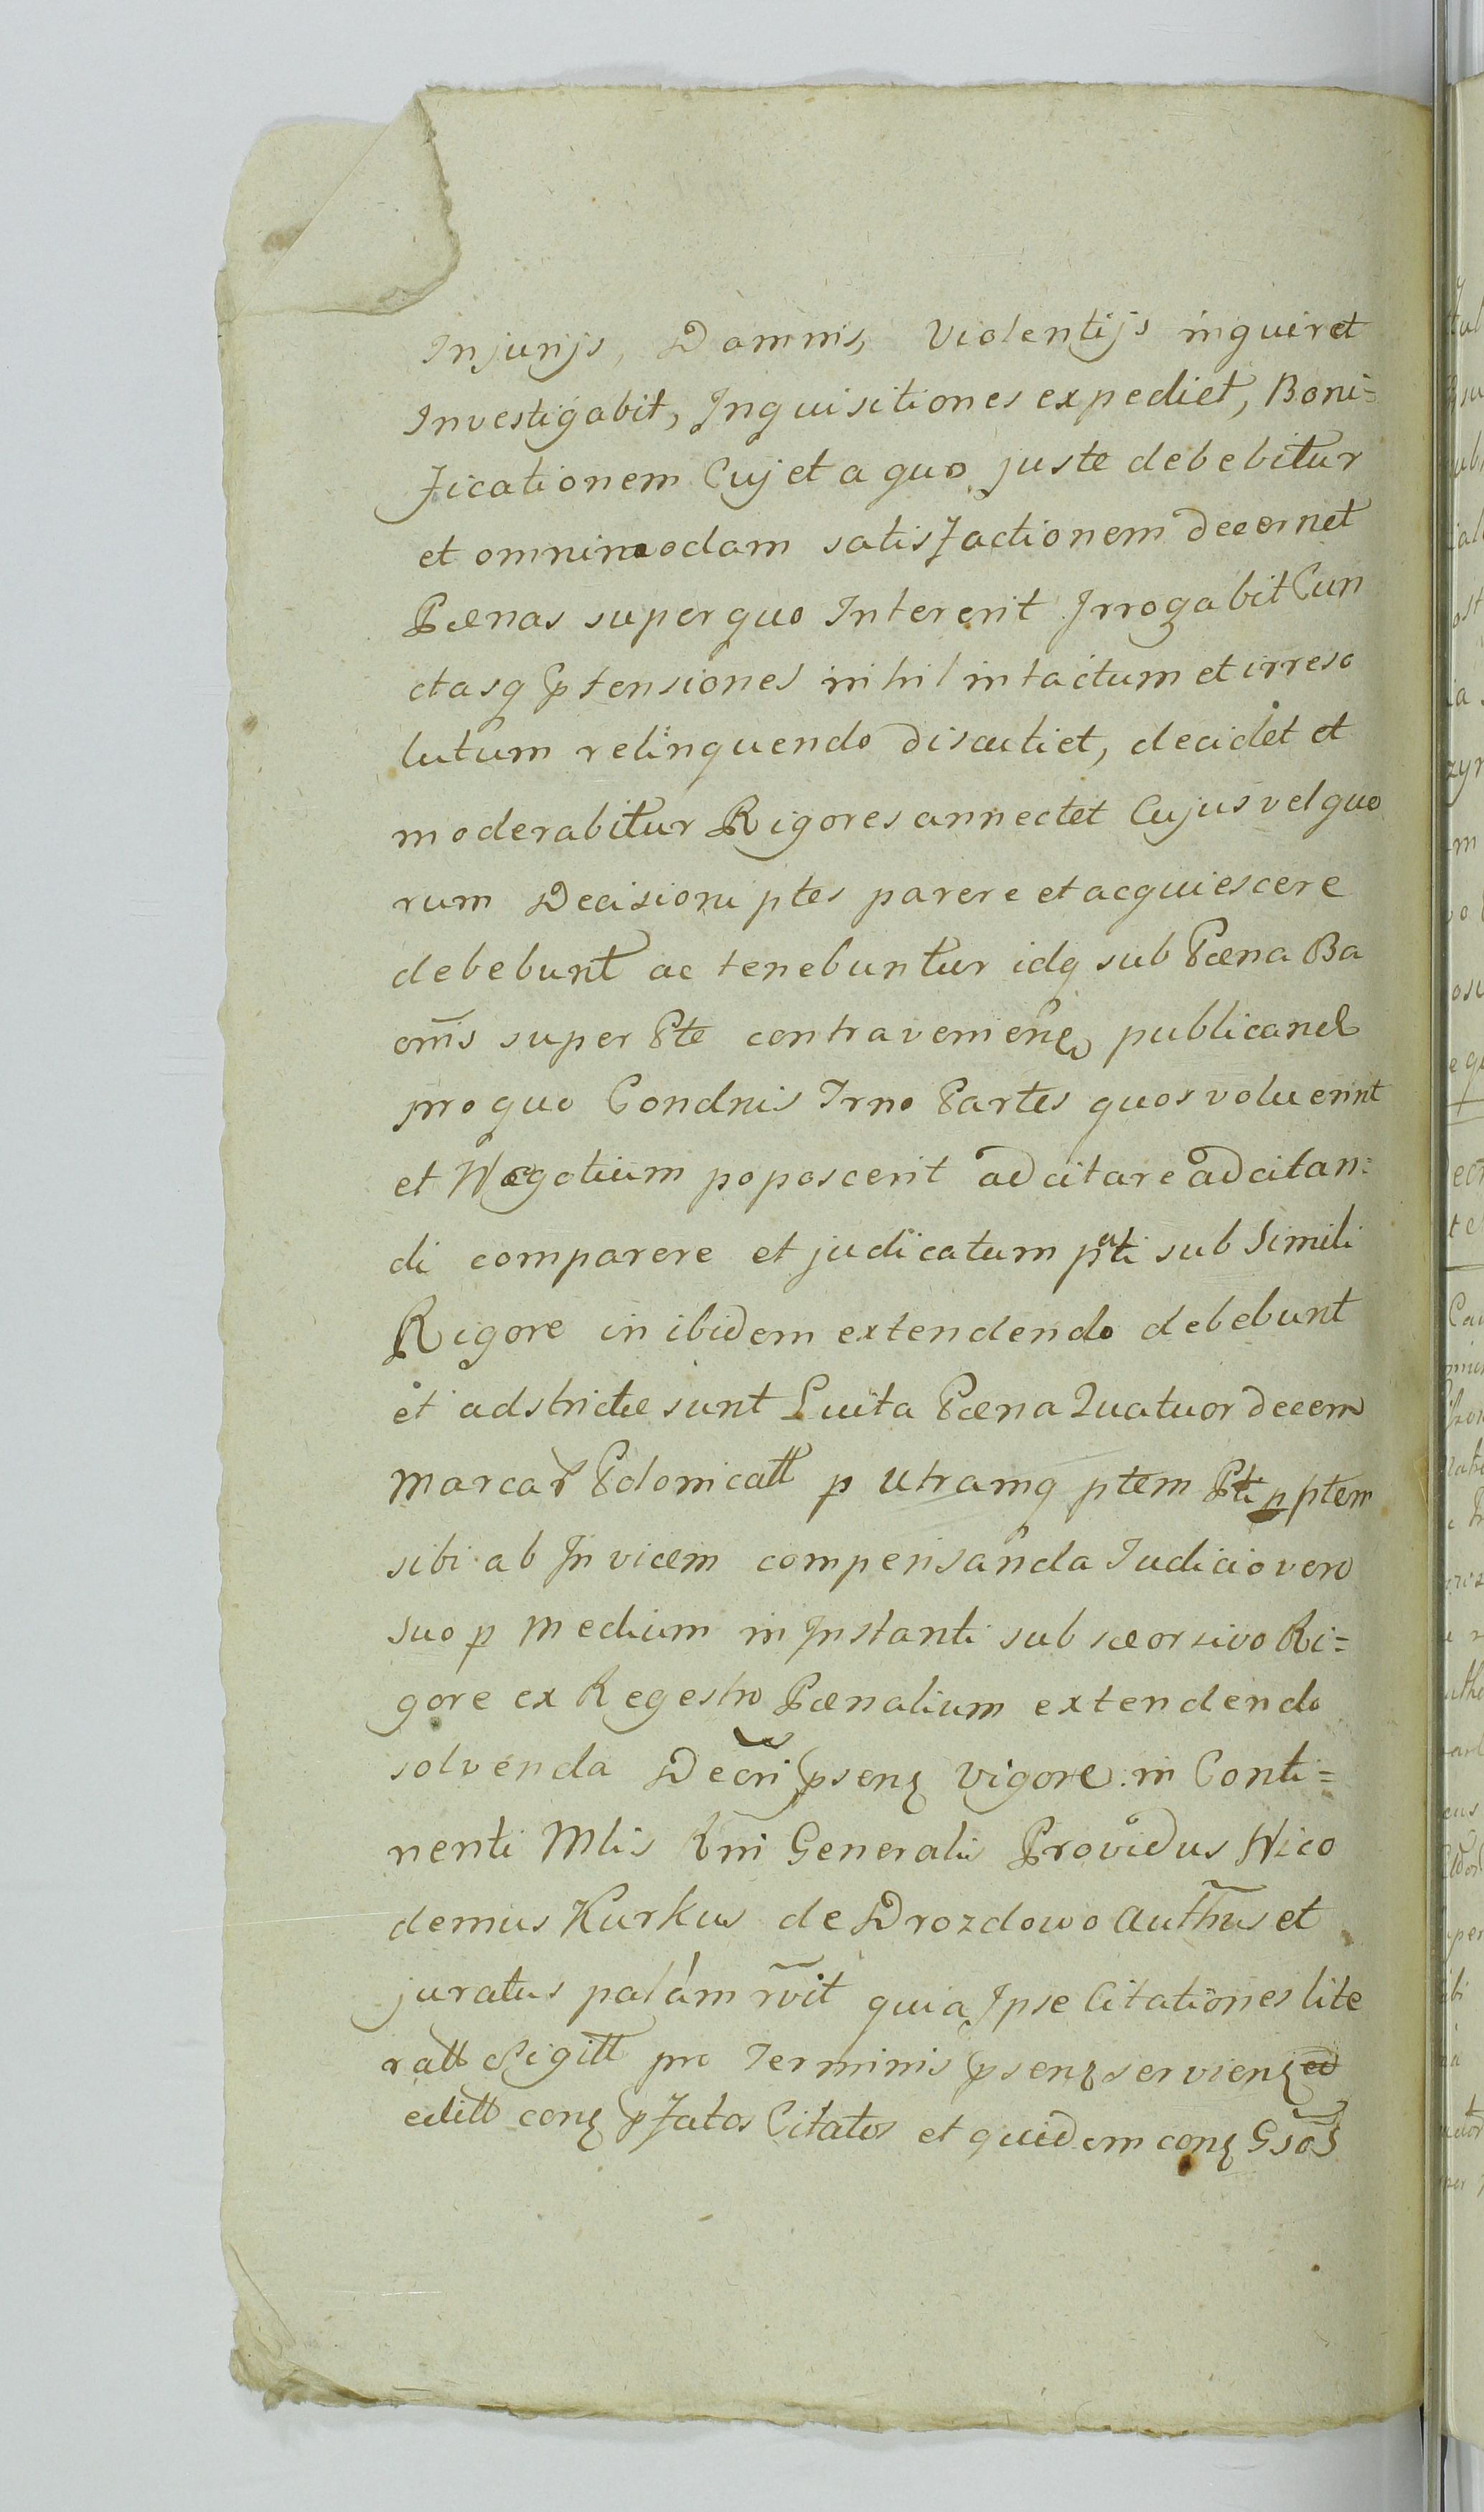 Injurijs, Damnis, Violentijs inquiret
Investigabit, Inquisitiones expediet, Boni=
ficationem Cuj et a quo juste debebitur
et omnimodam satisfactionem decernet
Pænas super quo Intererit Irrogabit Cun
ctasq ptensiones nihil intactum et irreso
lutum relinquendo discutiet, decidet et
moderabitur Rigores annectet Cujus vel quo
rum Decisioni ptes parere et acquiescere
debebunt ac tenebuntur idq sub Pæna Ba
onis super Pte contravenien publicand
pro quo Condnis Trno Partes quos voluerint
et Negotium poposcerit adcitare adcitan=
di comparere et judicatum pati sub Simili
Rigore in ibidem extendendo debebunt
et adstrictæ sunt Luita Pæna Quatuordecem
Marcar Polonicall p Utramq ptem Pti p ptem
sibi ab Invicem compensanda Judicio vero
suo p Medium in Instanti sub sæorsivo Ri=
gore ex Regestro Pænalium extendendo
solvenda Decri psen vigore in Conti=
nenti Mlis Rni Generalis Providus Nico
demus Kurkus de Drozdowo Authus et
juratus palàm rvit quia Ipse Citationes lite
rall Sigill pro Terminis psen servien
edill con pfatos Citatos et quidem con Gsos